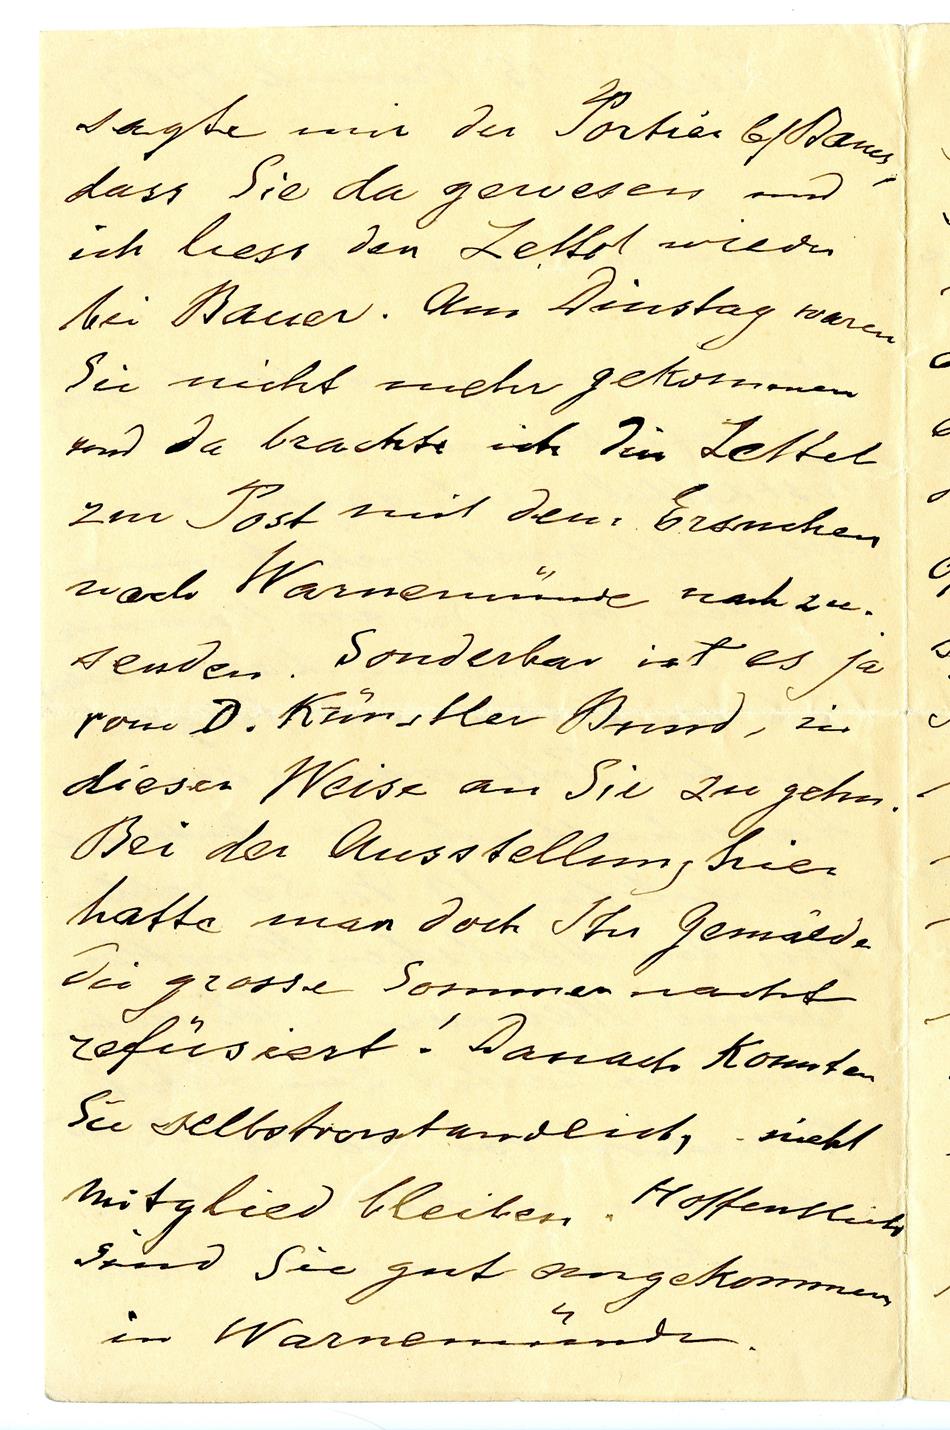 sagte mir der Portier b/Bauer,
dass Sie da gewesen und
ich liess den Zettel wieder
bei Bauer. Am Dinstag waren
Sie nicht mehr gekommen
und da brachte ich den Zettel
zur Post mit dem Ersuchen
nach Warnemünde nachzu-
senden. Sonderbar ist es ja
vom D. Künstler Bund, in
dieser Weise an Sie zu gehn.
Bei der Ausstellung hier
hatte man doch Ihr Gemälde
die grosse Sommernacht
refüsiert! Danach konnten
Sie selbstverstandlich, nicht
Mitglied bleiben. Hoffentlich
sind Sie gut angekommen
in Warnemünde.